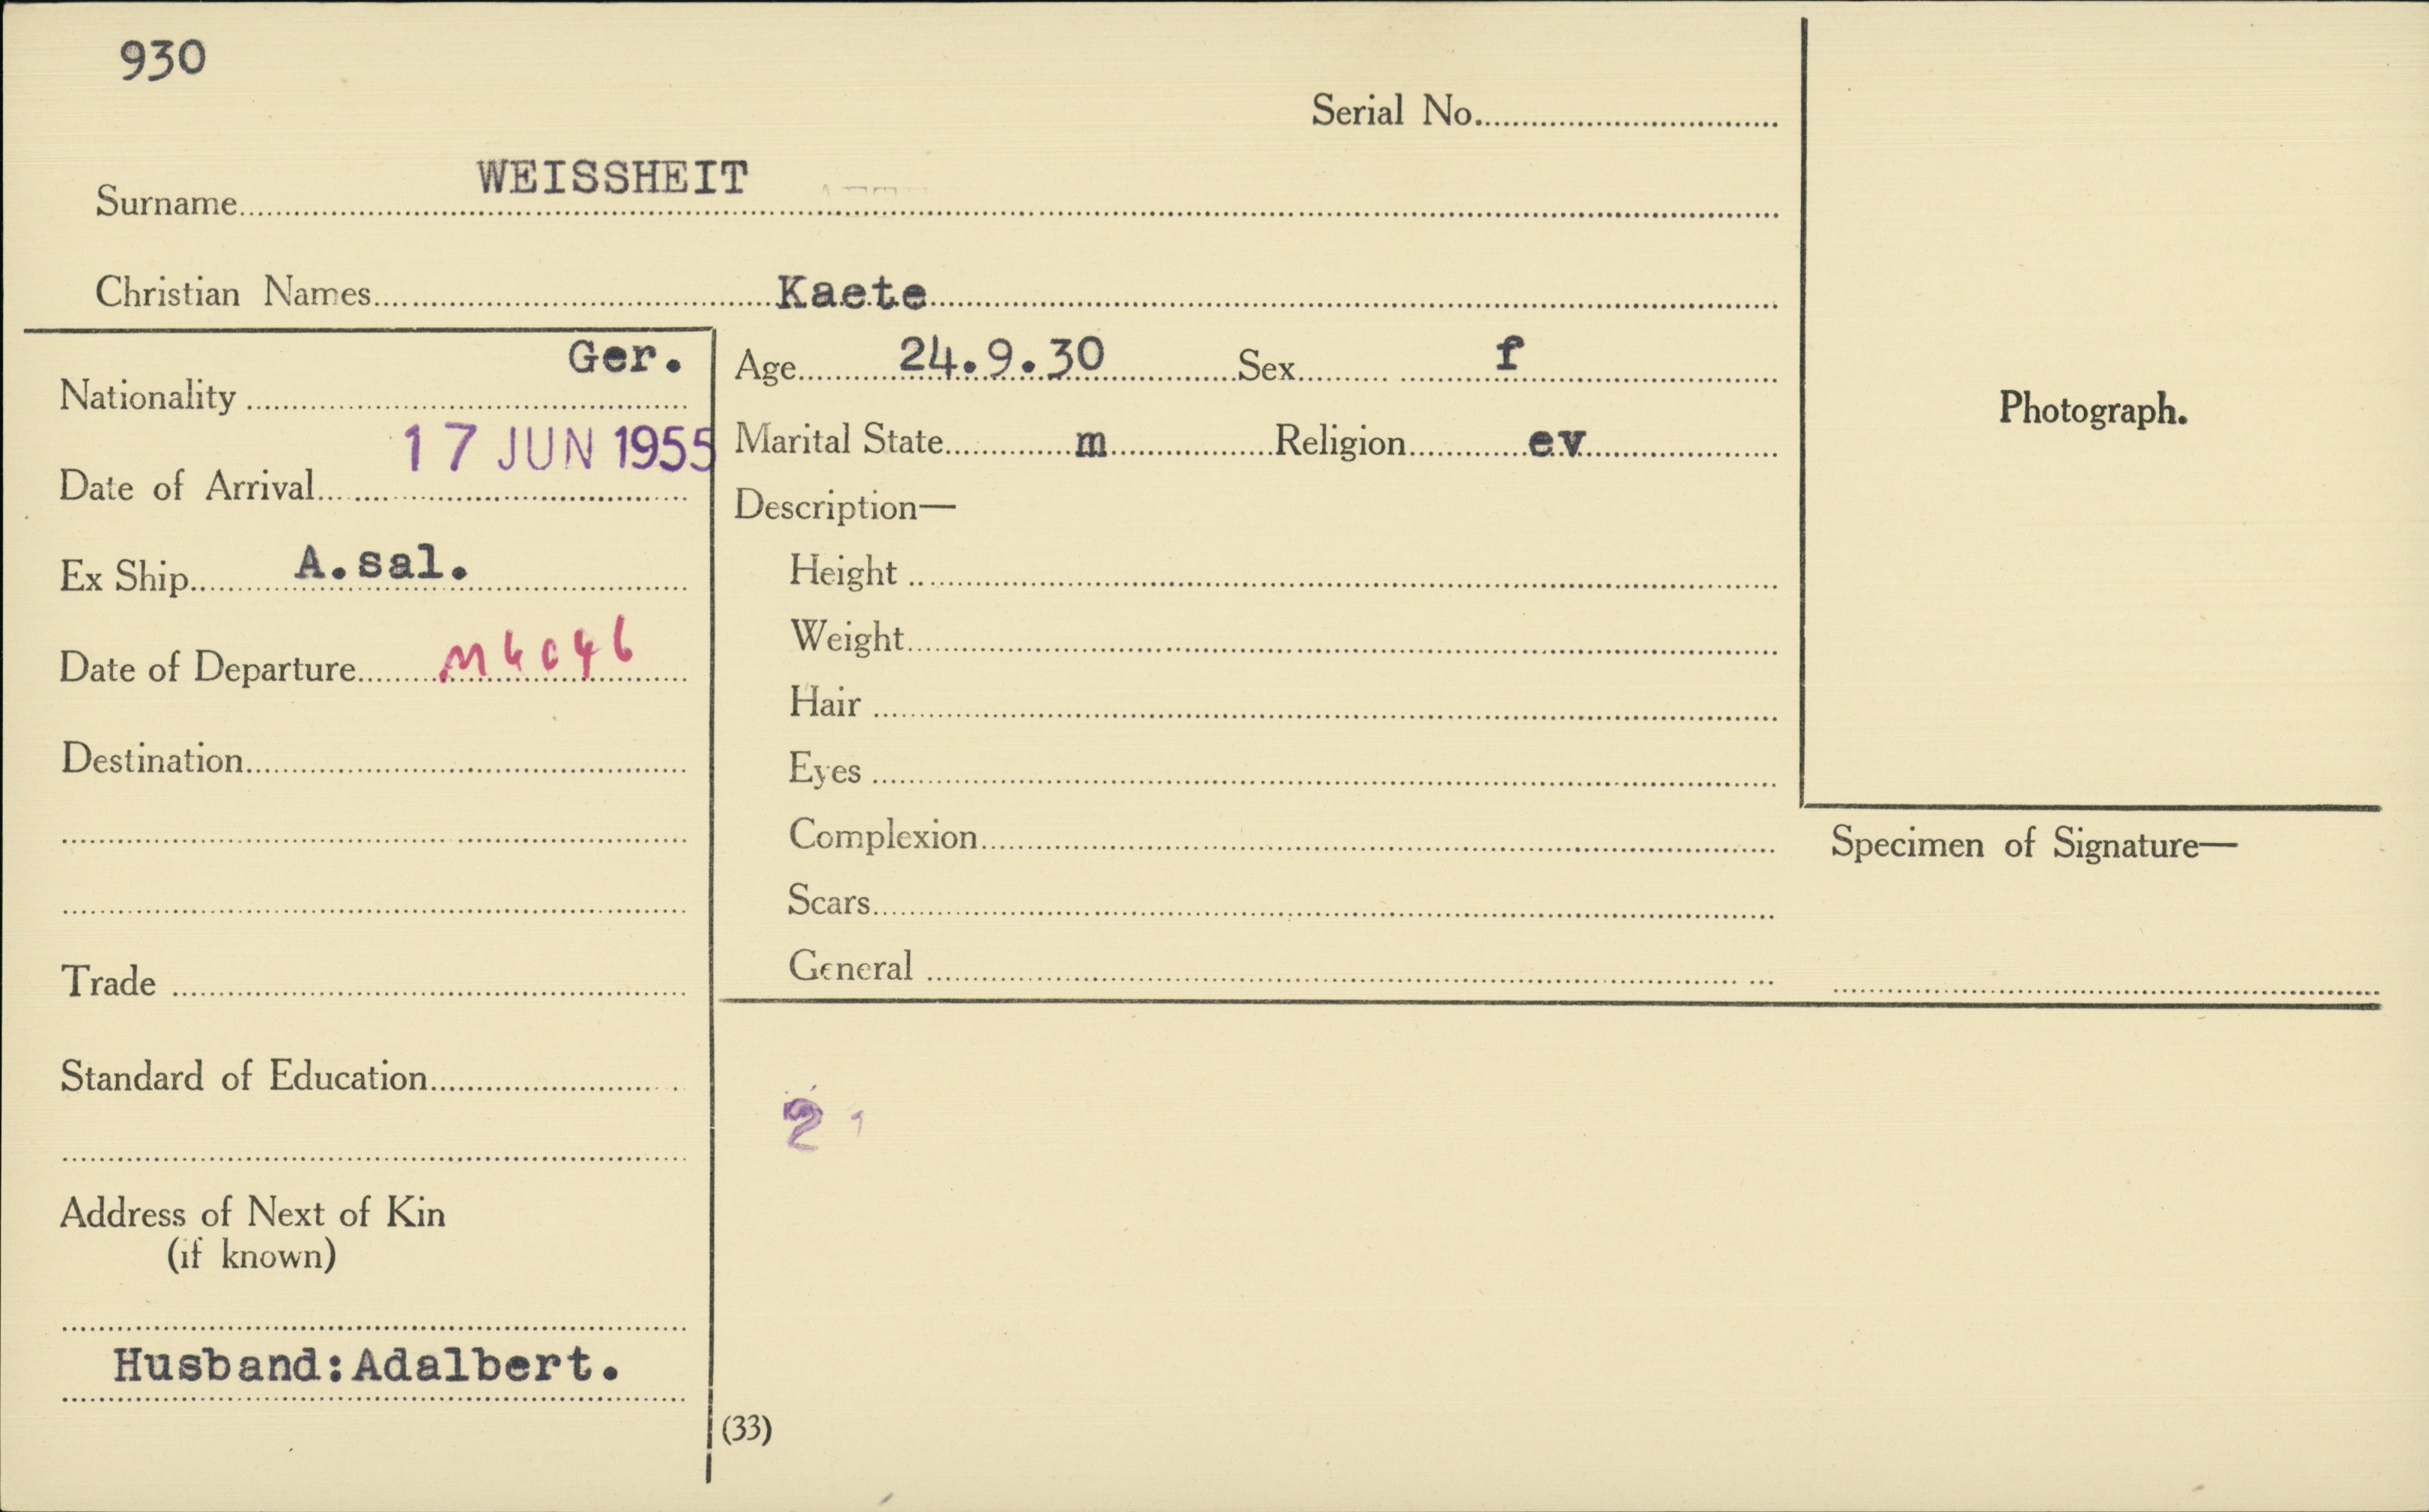 930
Serial No.
Surname WEISSHEIT
Christian Names Kaete
Nationality Ger.
Date of Arrival 17 JUN 1955
Ex Ship A.sal.
Date of Departure M4046
Destination
Trade
Standard of Education
Address of Next of Kin
(if known)
Husband:Adalbert.
Age 24.9.30 Sex f
Marital State m Religion ev
Description—
Height
Weight
Hair
Eyes
Complexion
Scars
General
2
(33)
Photograph.
Specimen of Signature—